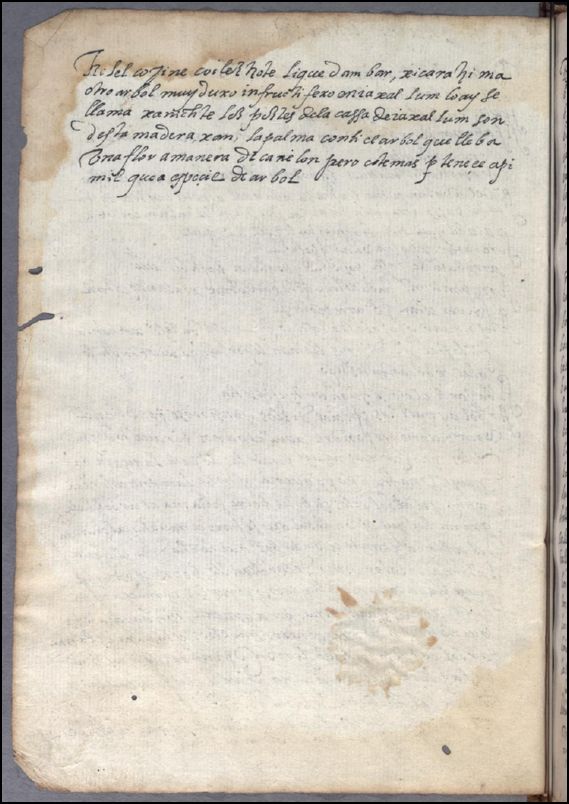 el copine coilethote liquedambar, xicara hi ma
otro arbol muy duro infructifero oniaxal sum lo ay se
llama xanichte los postes dela cassa de iaxal sum son
desta madera xan, la palma conti el arbol que lleba
una flor a manera de canelon pero co temas ptenece api
mil que a especie de arbol